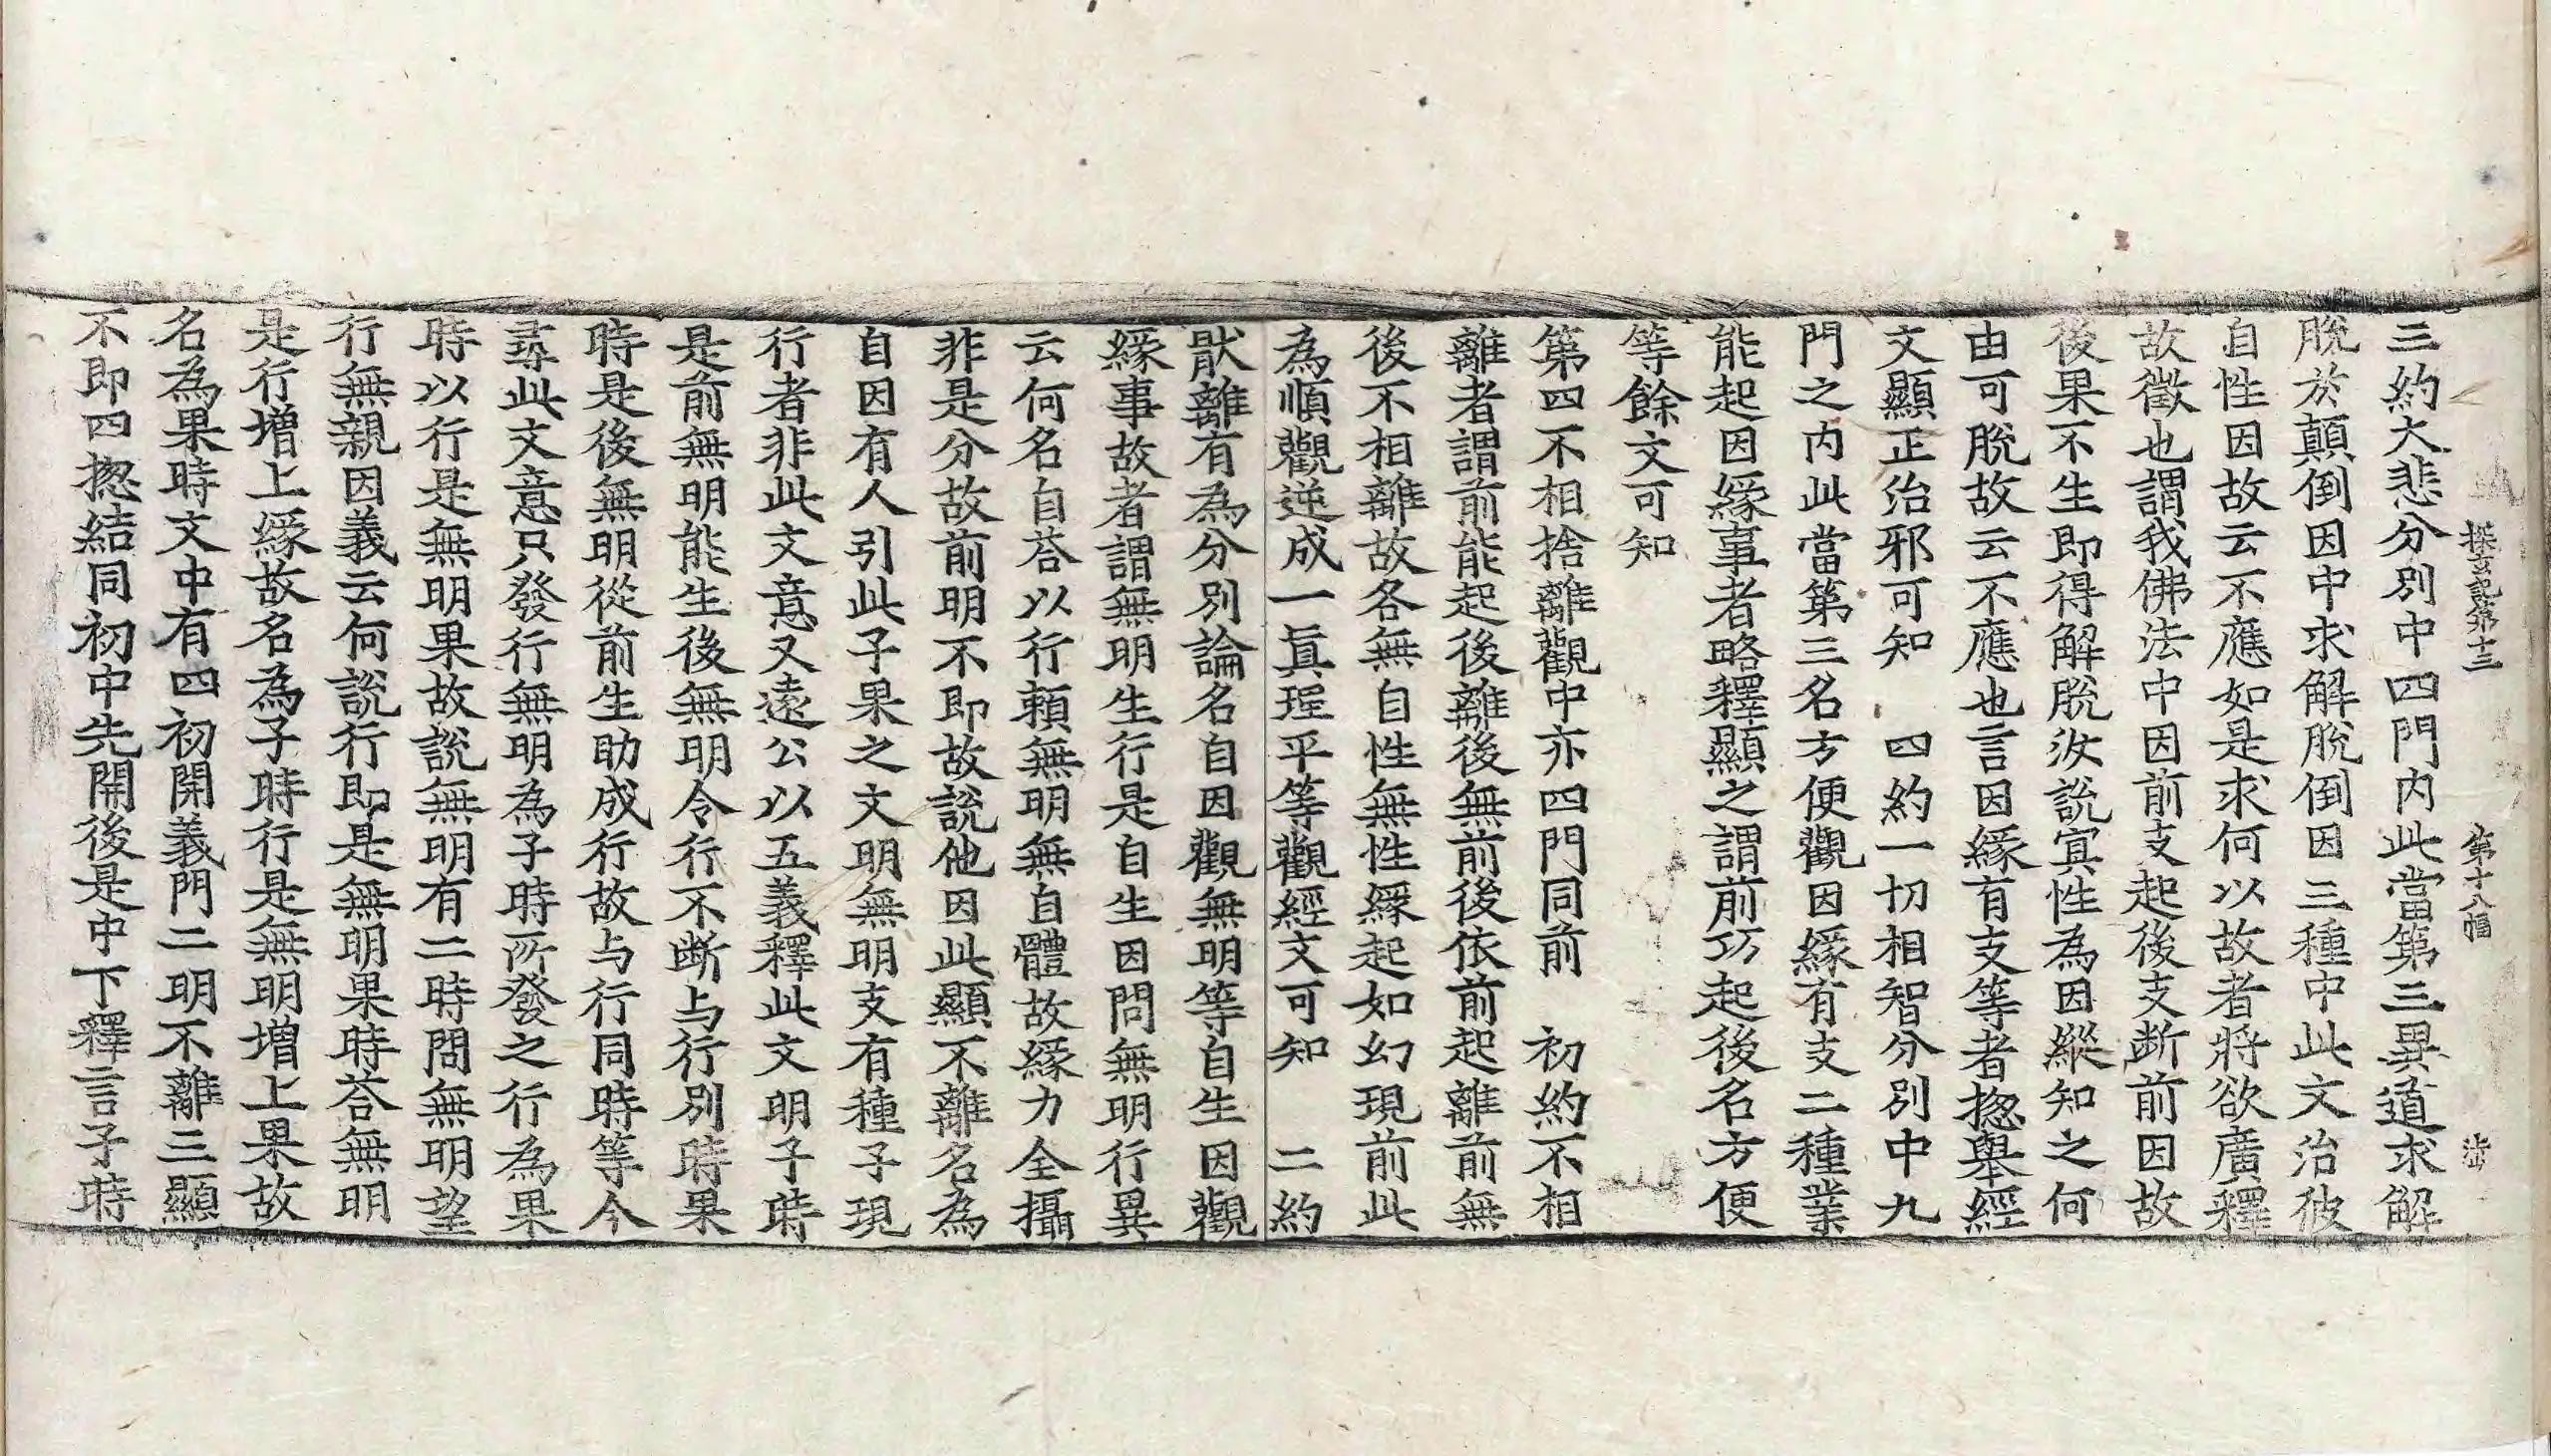 探玄記第十三　第十八幅
三約大悲分別中四門内此當第三異道求解
脫於顛倒因中求解脫倒因三種中此文治彼
自性因故云不應如是求何以故者將欲廣釋
故徵也謂我佛法中因前支起後支断前因故
後果不生即得解脫汝說冥性為因縱知之何
由可脫故云不應也言因緣有支等者揔舉經
文顯正治邪可知　四約一切相智分別中九
門之内此當第三名方便觀因緣有支二種業
能起因緣事者略釋顯之謂前㓛起後名方便
等餘文可知
第四不相捨離觀中亦四門同前　初約不相
離者謂前能起後離後無前後依前起離前無
後不相離故各無自性無性緣起如幻現前此
為順觀逆成一真理平等觀經文可知　二約
猒離有為分別論名自因觀無明等自生因觀
緣事故者謂無明生行是自生因問無明行異
云何名自荅以行賴無明無自體故緣力全攝
非是分故前明不即故說他因此顯不離名為
自因有人引此子果之文明無明支有種子現
行者非此文意又遠公以五義釋此文明子時
是前無明能生後無明令行不断与行別時果
時是後無明從前生助成行故与行同時等今
尋此文意只發行無明為子時所發之行為果
時以行是無明果故說無明有二時問無明望
行無親因義云何說行即是無明果時荅無明
是行增上緣故名為子時行是無明增上果故
名為果時文中有四初開義門二明不離三顯
不即四揔結同初中先開後是中下釋言子時